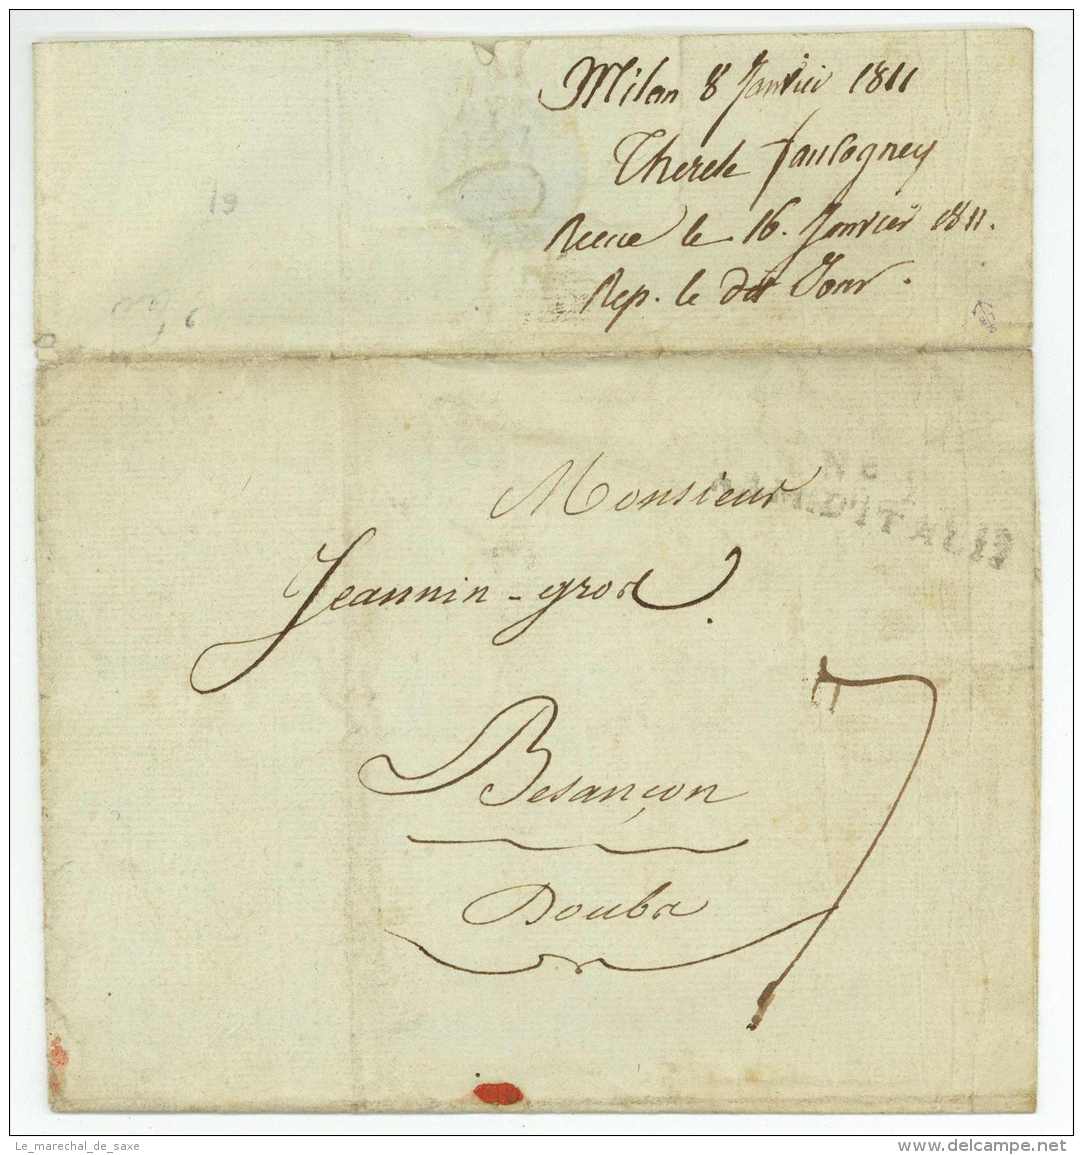 Milan 8 Janvier 1811
Therese faucogney
Recue le 16. Janvier 1811.
Rep. le dit Jour.
19
Monsieur
NE
ARM. D'ITALIE
Jeannin-gros
7
Besançon
Doubs
Le_marechal_de_saxe
www.delcampe.net